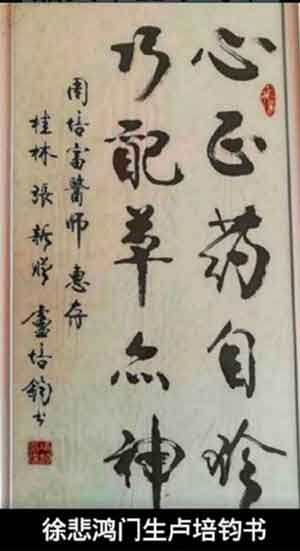 心正药自
巧配草亦神
周培富醫師 惠存
桂林 張新 盧培鈞书
徐悲鸿门生卢培钧书